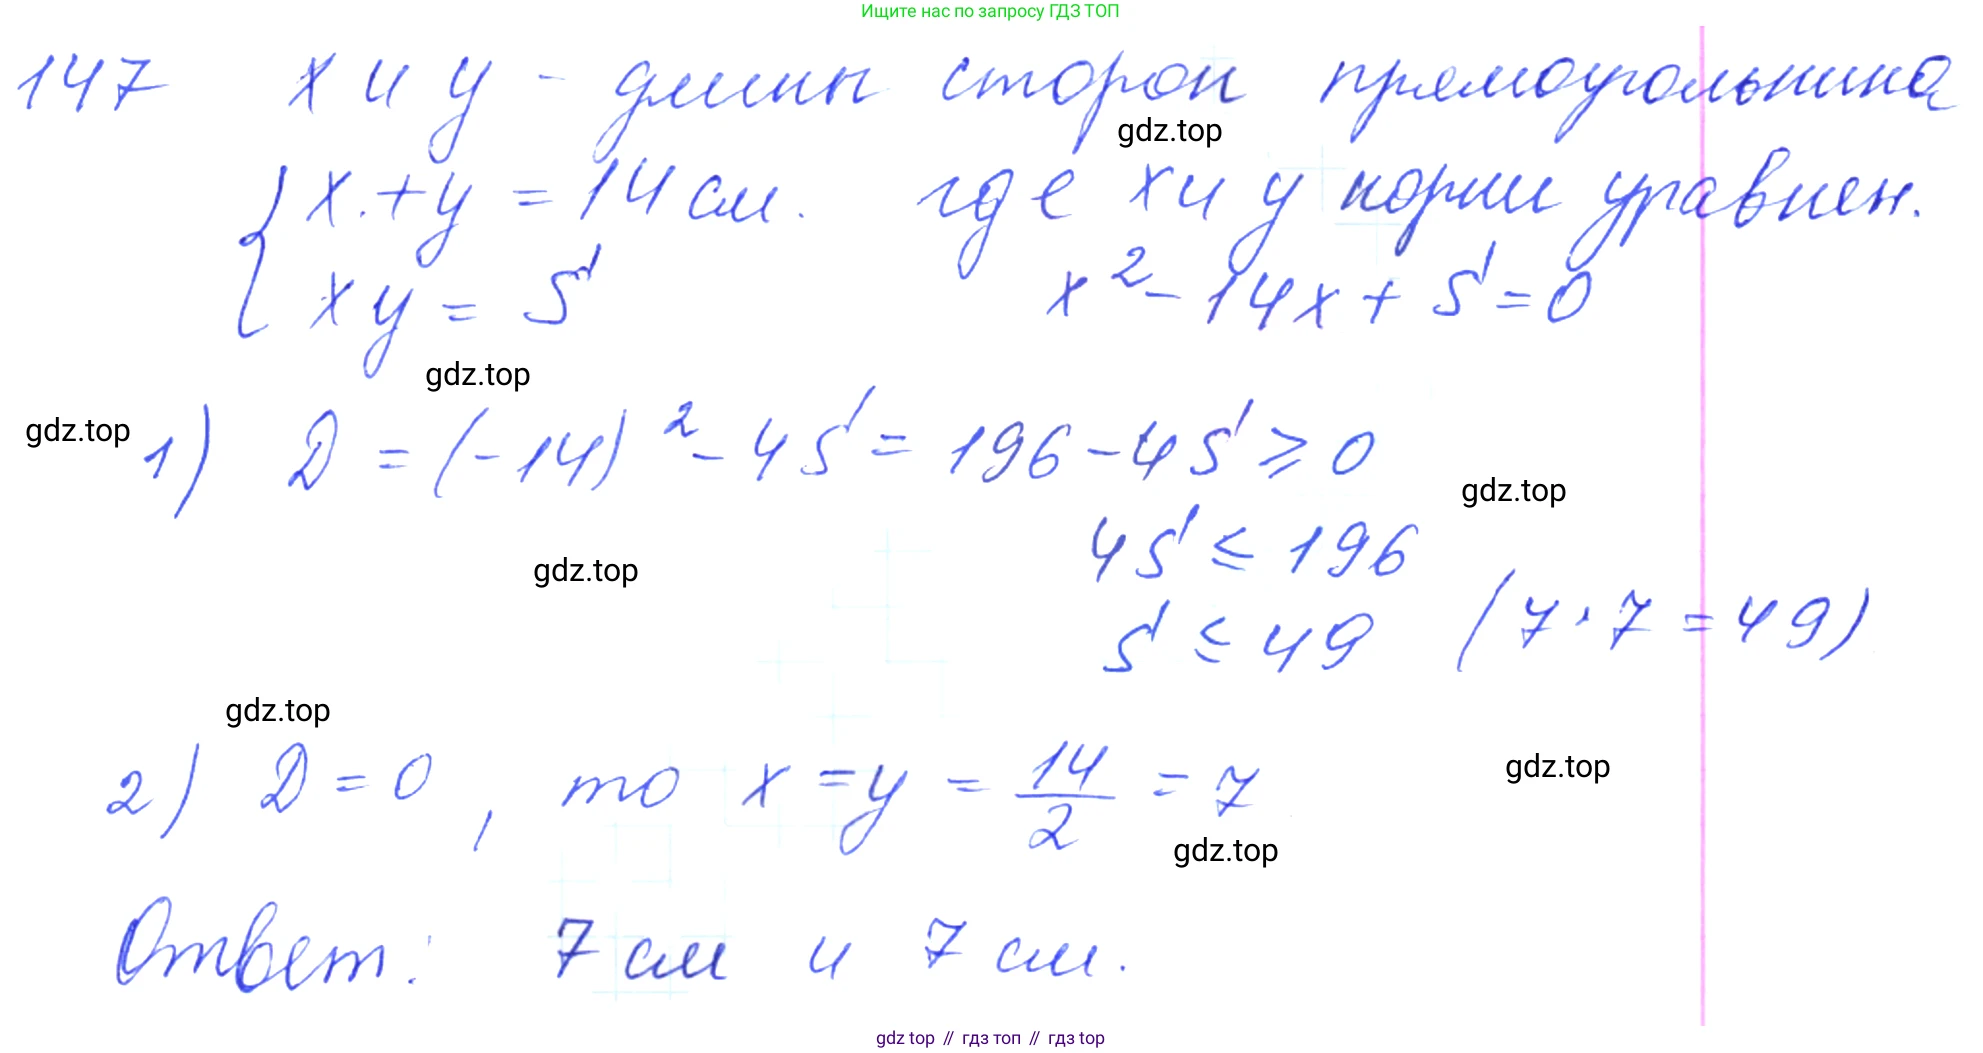 Ищите нас по запросу ГДЗ ТОП
147 x и y - длины сторон прямоугольника
gdz.top
{ x + y = 14 см. где x и y корни уравнен.
xy = S x² - 14x + S = 0
gdz.top
gdz.top
1) D = (-14)² - 4S = 196 - 4S ≥ 0
gdz.top
4S ≤ 196
gdz.top
S ≤ 49 (7 · 7 = 49)
gdz.top
2) D = 0, то x = y = 14/2 = 7
gdz.top
gdz.top
Ответ: 7 см и 7 см.
gdz top // гдз топ // гдз top